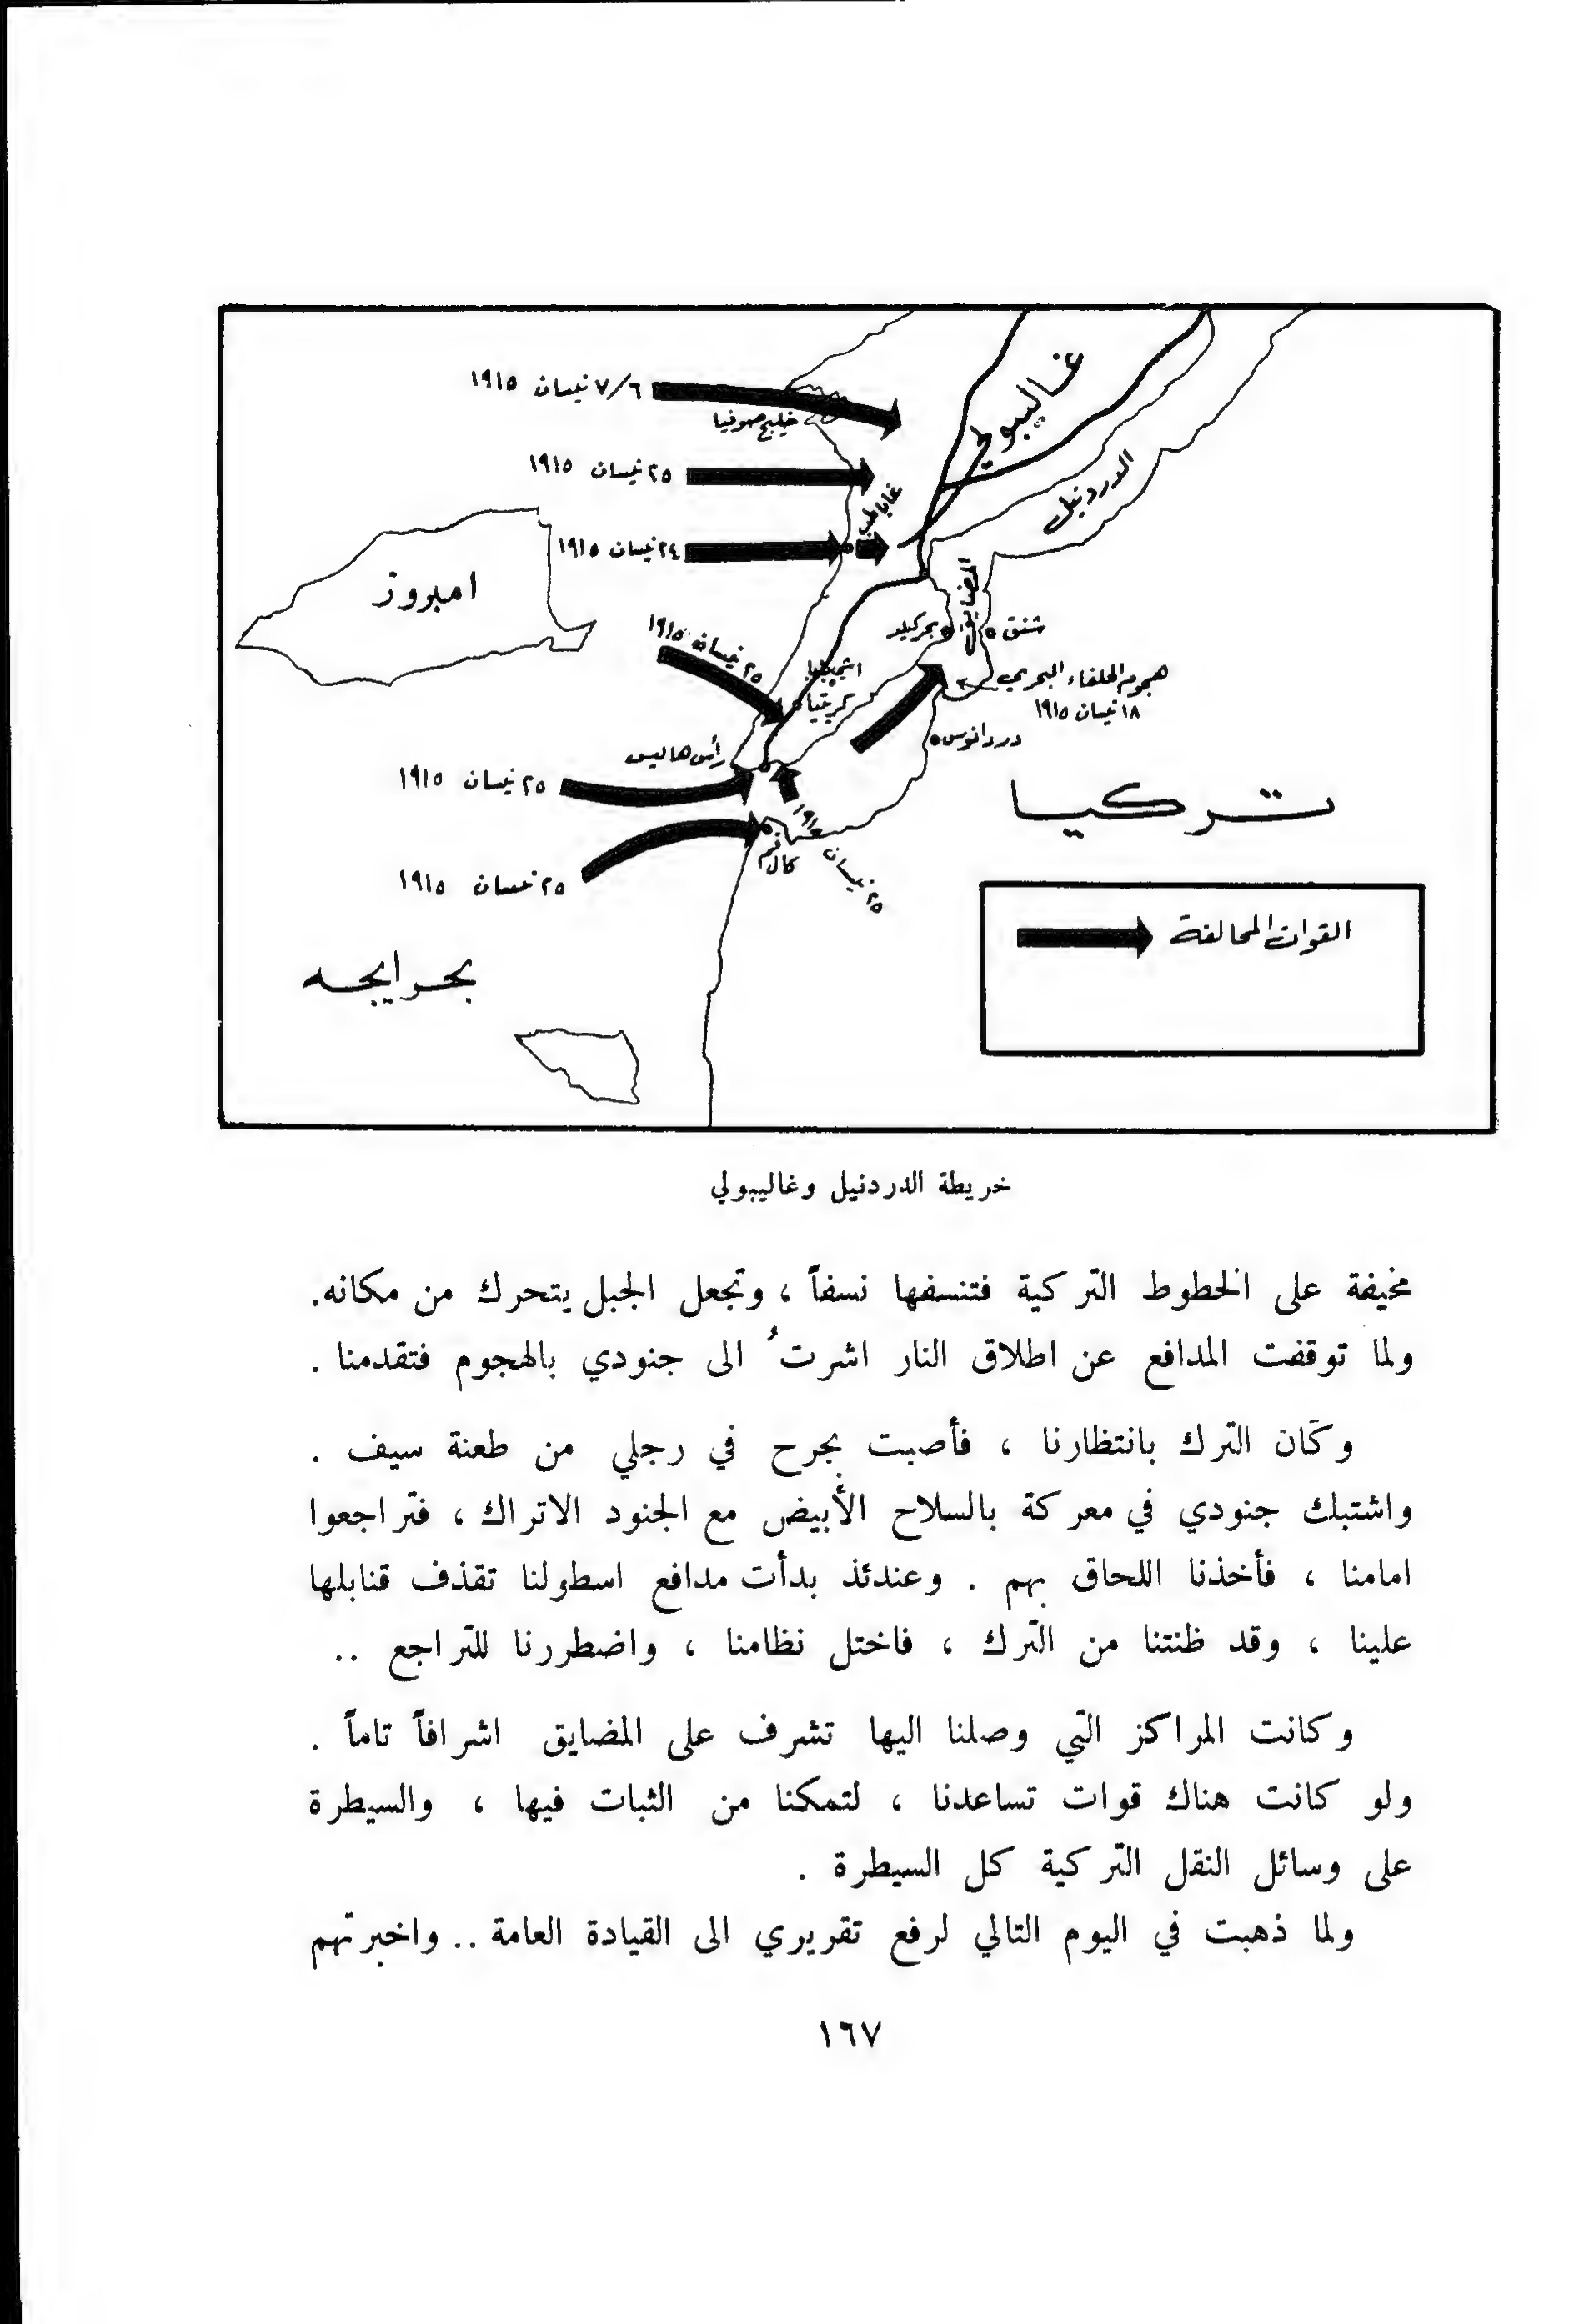 غاليبولي
٧/٦ نيسان ١٩١٥
خليج صوفيا
٢٥ نيسان ١٩١٥
الدردنيل
غاباطب
٢٤ نيسان ١٩١٥
امبروز
المضايق
بحركيلد
شنق
٢٥ نيسان ١٩١٥
اتشيبابا
كريتيا
هجوم الحلفاء البحري
١٨ نيسان ١٩١٥
دردانوس
رأس هاليس
٢٥ نيسان ١٩١٥
تركيا
٢٥ نيسان ١٩١٥
كال
٢٥ نيسان ١٩١٥
القوات المحالفة
بحر ايجه
خريطة الدردنيل وغاليبولي
مخيفة على الخطوط التركية فتنسفها نسفاً ، وتجعل الجبل يتحرك من مكانه.
ولما توقفت المدافع عن اطلاق النار اشرتُ الى جنودي بالهجوم فتقدمنا .
وكان الترك بانتظارنا ، فأصبت بجرح في رجلي من طعنة سيف .
واشتبك جنودي في معركة بالسلاح الأبيض مع الجنود الاتراك ، فتراجعوا
امامنا ، فأخذنا اللحاق بهم . وعندئذ بدأت مدافع اسطولنا تقذف قنابلها
علينا ، وقد ظنتنا من الترك ، فاختل نظامنا ، واضطررنا للتراجع ..
وكانت المراكز التي وصلنا اليها تشرف على المضايق اشرافاً تاماً .
ولو كانت هناك قوات تساعدنا ، لتمكنا من الثبات فيها ، والسيطرة
على وسائل النقل التركية كل السيطرة .
ولما ذهبت في اليوم التالي لرفع تقريري الى القيادة العامة .. واخبرتهم
١٦٧